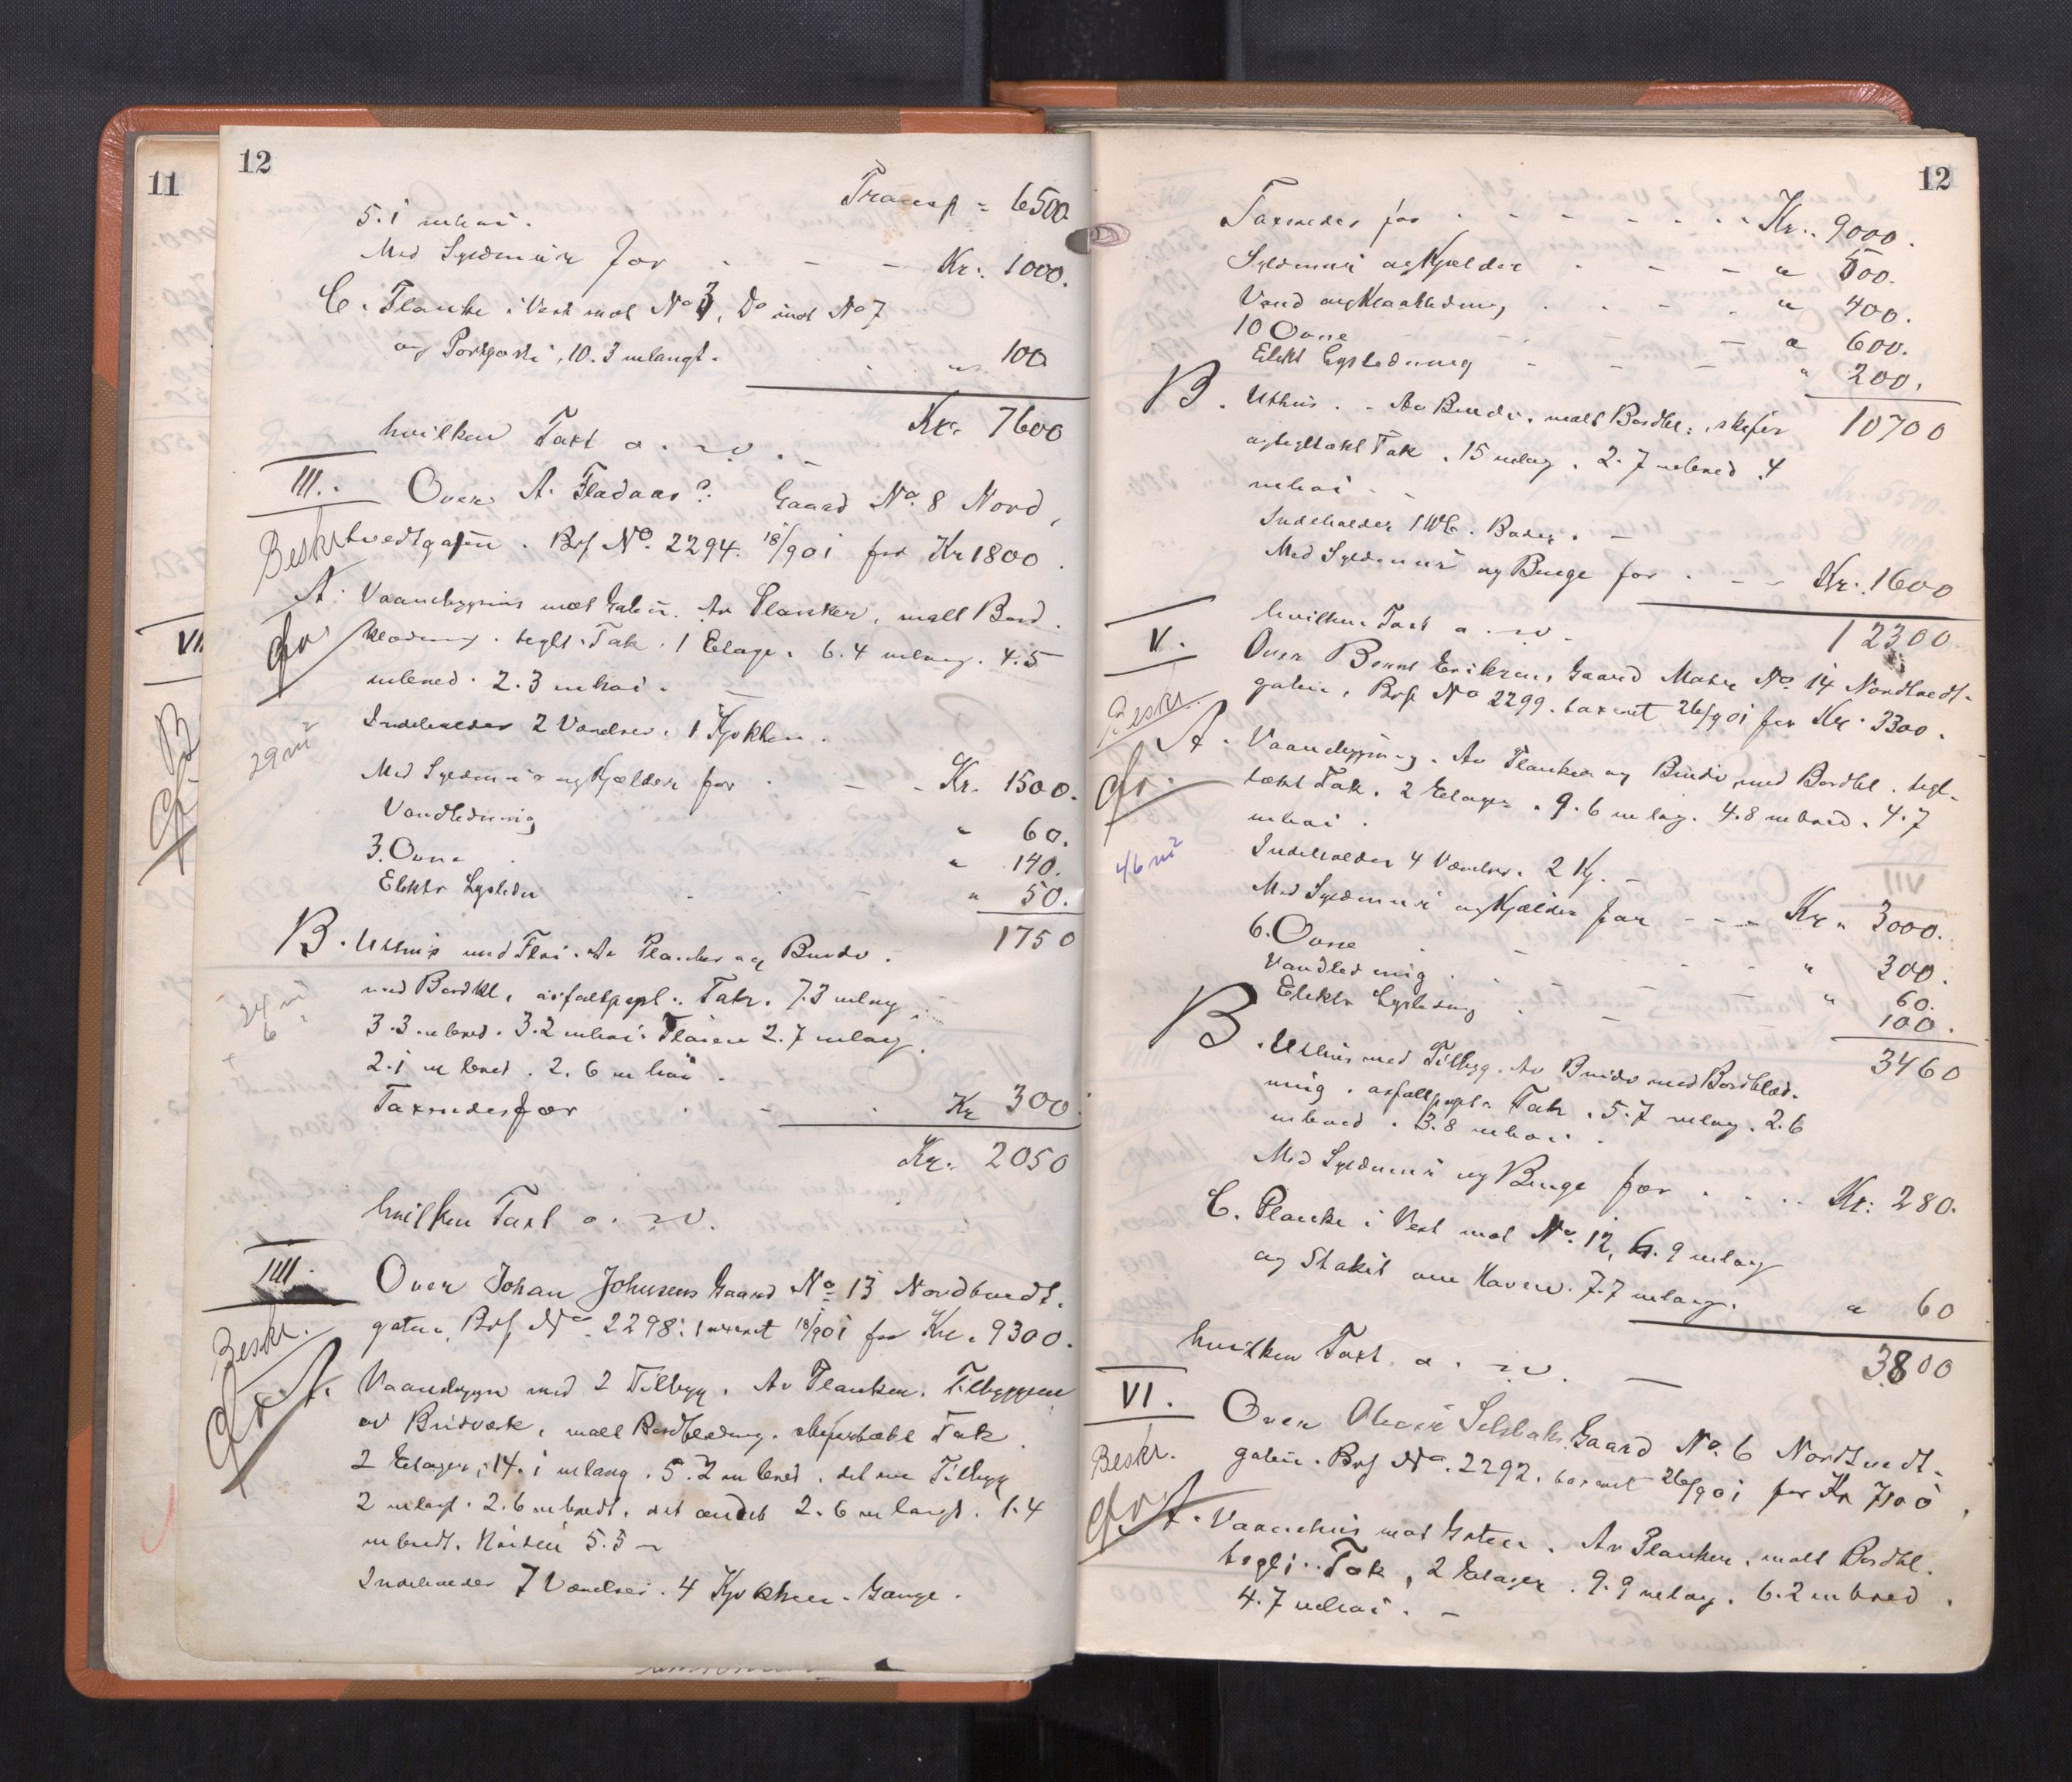 11
VII
B
12
Transp = 6500
5.1 m høi.
Med Syldmur for - - - Kr. 1000.
C. Planke i Vest mot No 3, Do mot No 7
og Portport, 10.3 m langt. . " 100
Kr. 7600
hvilken Taxt o. s. v. -
III. Over A. Fladaas? Gaard No. 8 Nord,
Beskr. tvedtgaten. Brf No. 2294. 18/901 for Kr 1800.
A. Vaanebygning mot Gaten. Av Planker, malt Bord.
klædning. teglt. Tak. 1 Etage. 6.4 m lang. 4.5
m bred. 2.3 m høi. -
29 m2
Indeholder 2 Værelser. 1 Kjøkken.
Med Syldmur og Kjælder for . - - Kr. 1500.
Vandledning " 60.
3. Ovne . " 140.
Elektr Lysledn . - - " 50.
1750
B. Uthus med Fløi. Av Planker og Bindv.
med Bordkl, asfaltpapt. Tak. 7.3 m lang
24 m
6 "
3.3 m bred. 3.2 m høi. Fløien 2.7 m lang.
2.1 m bred. 2.6 m høi.
Taxeredes for . - . Kr 300
Kr. 2050
hvilken Taxt o. s. v.
IIII. Over Johan Johnsens Gaard No 13 Nordtvedt.
Beskr. gaten, Brf No. 2298. taxeret 18/901 for Kr. 9300.
A. Vaanebygn med 2 Tilbygg. Av Planker. Tilbyggene
av Bindverk, malt Bordklædning. skifertækt Tak.
2 Etager, 14.1 m lang. 5.2 m bred. det ene Tilbygg
2 m langt. 2.6 m bredt. det andet 2.6 m langt. 1.4
m bredt. Høiden 5.5 m
Indeholder 7 Værelser. 4 Kjøkken. Gange.
12
Taxeredes for . - - - - - Kr.. 9000.
Syldmur og Kjælder - - - " 500.
Vand og Kloakledning . . - . " 400.
10 Ovne - - - " 600.
Elekt Lysledning - - - " 200.
10700
B. Uthus. - Av Bindv. malt Bordkl. skifer
og tegltækt Tak. 15 m lang. 2.7 m bred. 4
m høi. -
Indeholder 1 WC. Boder. -
Med Syldmur og Beuge for . - - Kr. 1600
12300
hvilken Taxt o. s. v.
V. Over Bernt Eriksens Gaard Matr No. 14 Nordtvedt-
Beskr. gaten, Brf. No 2299. taxeret 26/901 for Kr. 3300.
A. Vaanebygning. Av Planker og Bindv med Bordkl. tegl-
tækt Tak. 2 Etager. 9.6 m lang. 4.8 m bred. 4.7
m høi.
46 m2
Indeholder 4 Værelser. 2 Kj. -
Med Syldmur og Kjælder for - - - Kr. 3000.
6. Ovne . - - - " 300.
Vandledning . - " 60.
Elektr Lysledning . - 100.
3460
B. Uthus med Tilbygg. Av Bindv med Bordklæd-
ning. asfaltpapt. Tak. 5.7 m lang. 2.6
m bred. 3.8 m høi.
Med Syldmur og Beuge for . . - Kr. 280.
C. Planke i Vest mot No. 12, 6.9 m lang
og Stakit om Haven. 7.7 m lang. " 60
hvilken Taxt o. s. v. - 3800
VI. Over Gaard No. 6 Nordtvedt-
Beskr. gaten. Brf No. 2292. taxeret 26/901 for Kr 7100.
A. Vaanehus mot Gaten. Av Planker, malt Bordkl.
teglt. Tak, 2 Etager. 9.9 m lang. 6.2 m bred.
4.7 m høi. -